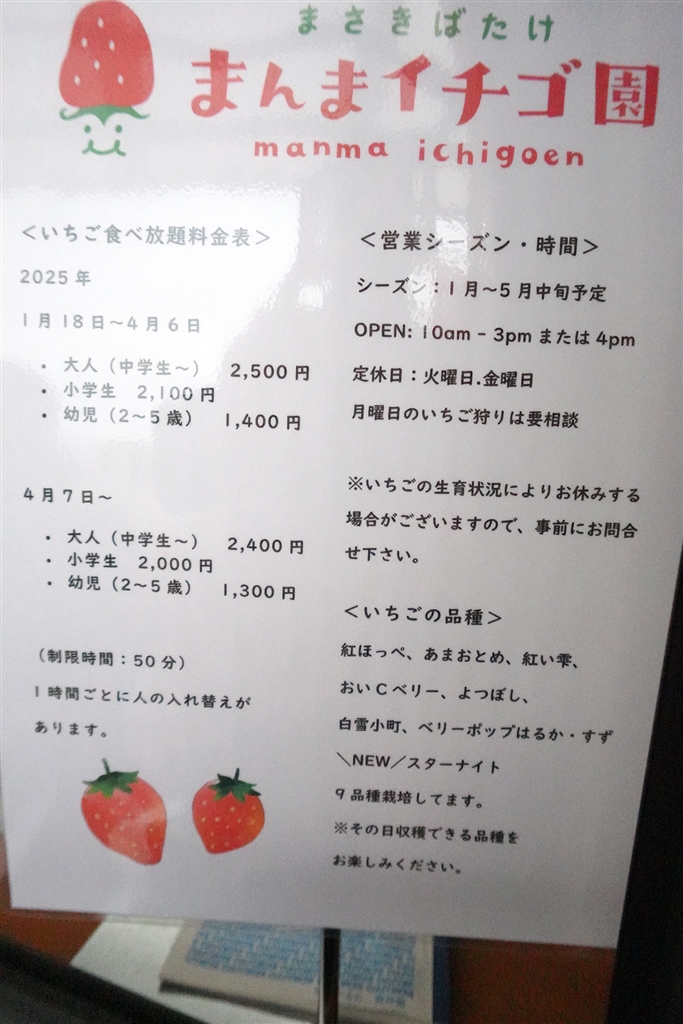 まさきばたけ
まんまイチゴ園
manma ichigoen
＜いちご食べ放題料金表＞
2025年
1月18日～4月6日
・ 大人（中学生～） 2,500円
・ 小学生 2,100円
・ 幼児（2～5歳） 1,400円
4月7日～
・ 大人（中学生～） 2,400円
・ 小学生 2,000円
・ 幼児（2～5歳） 1,300円
（制限時間：50分）
1時間ごとに人の入れ替えが
あります。
＜営業シーズン・時間＞
シーズン：1月～5月中旬予定
OPEN: 10am – 3pm または 4pm
定休日：火曜日.金曜日
月曜日のいちご狩りは要相談
※いちごの生育状況によりお休みする
場合がございますので、事前にお問合
せ下さい。
＜いちごの品種＞
紅ほっぺ、あまおとめ、紅い雫、
おいCベリー、よつぼし、
白雪小町、ベリーポップはるか・すず
＼NEW／スターナイト
9品種栽培してます。
※その日収穫できる品種を
お楽しみください。